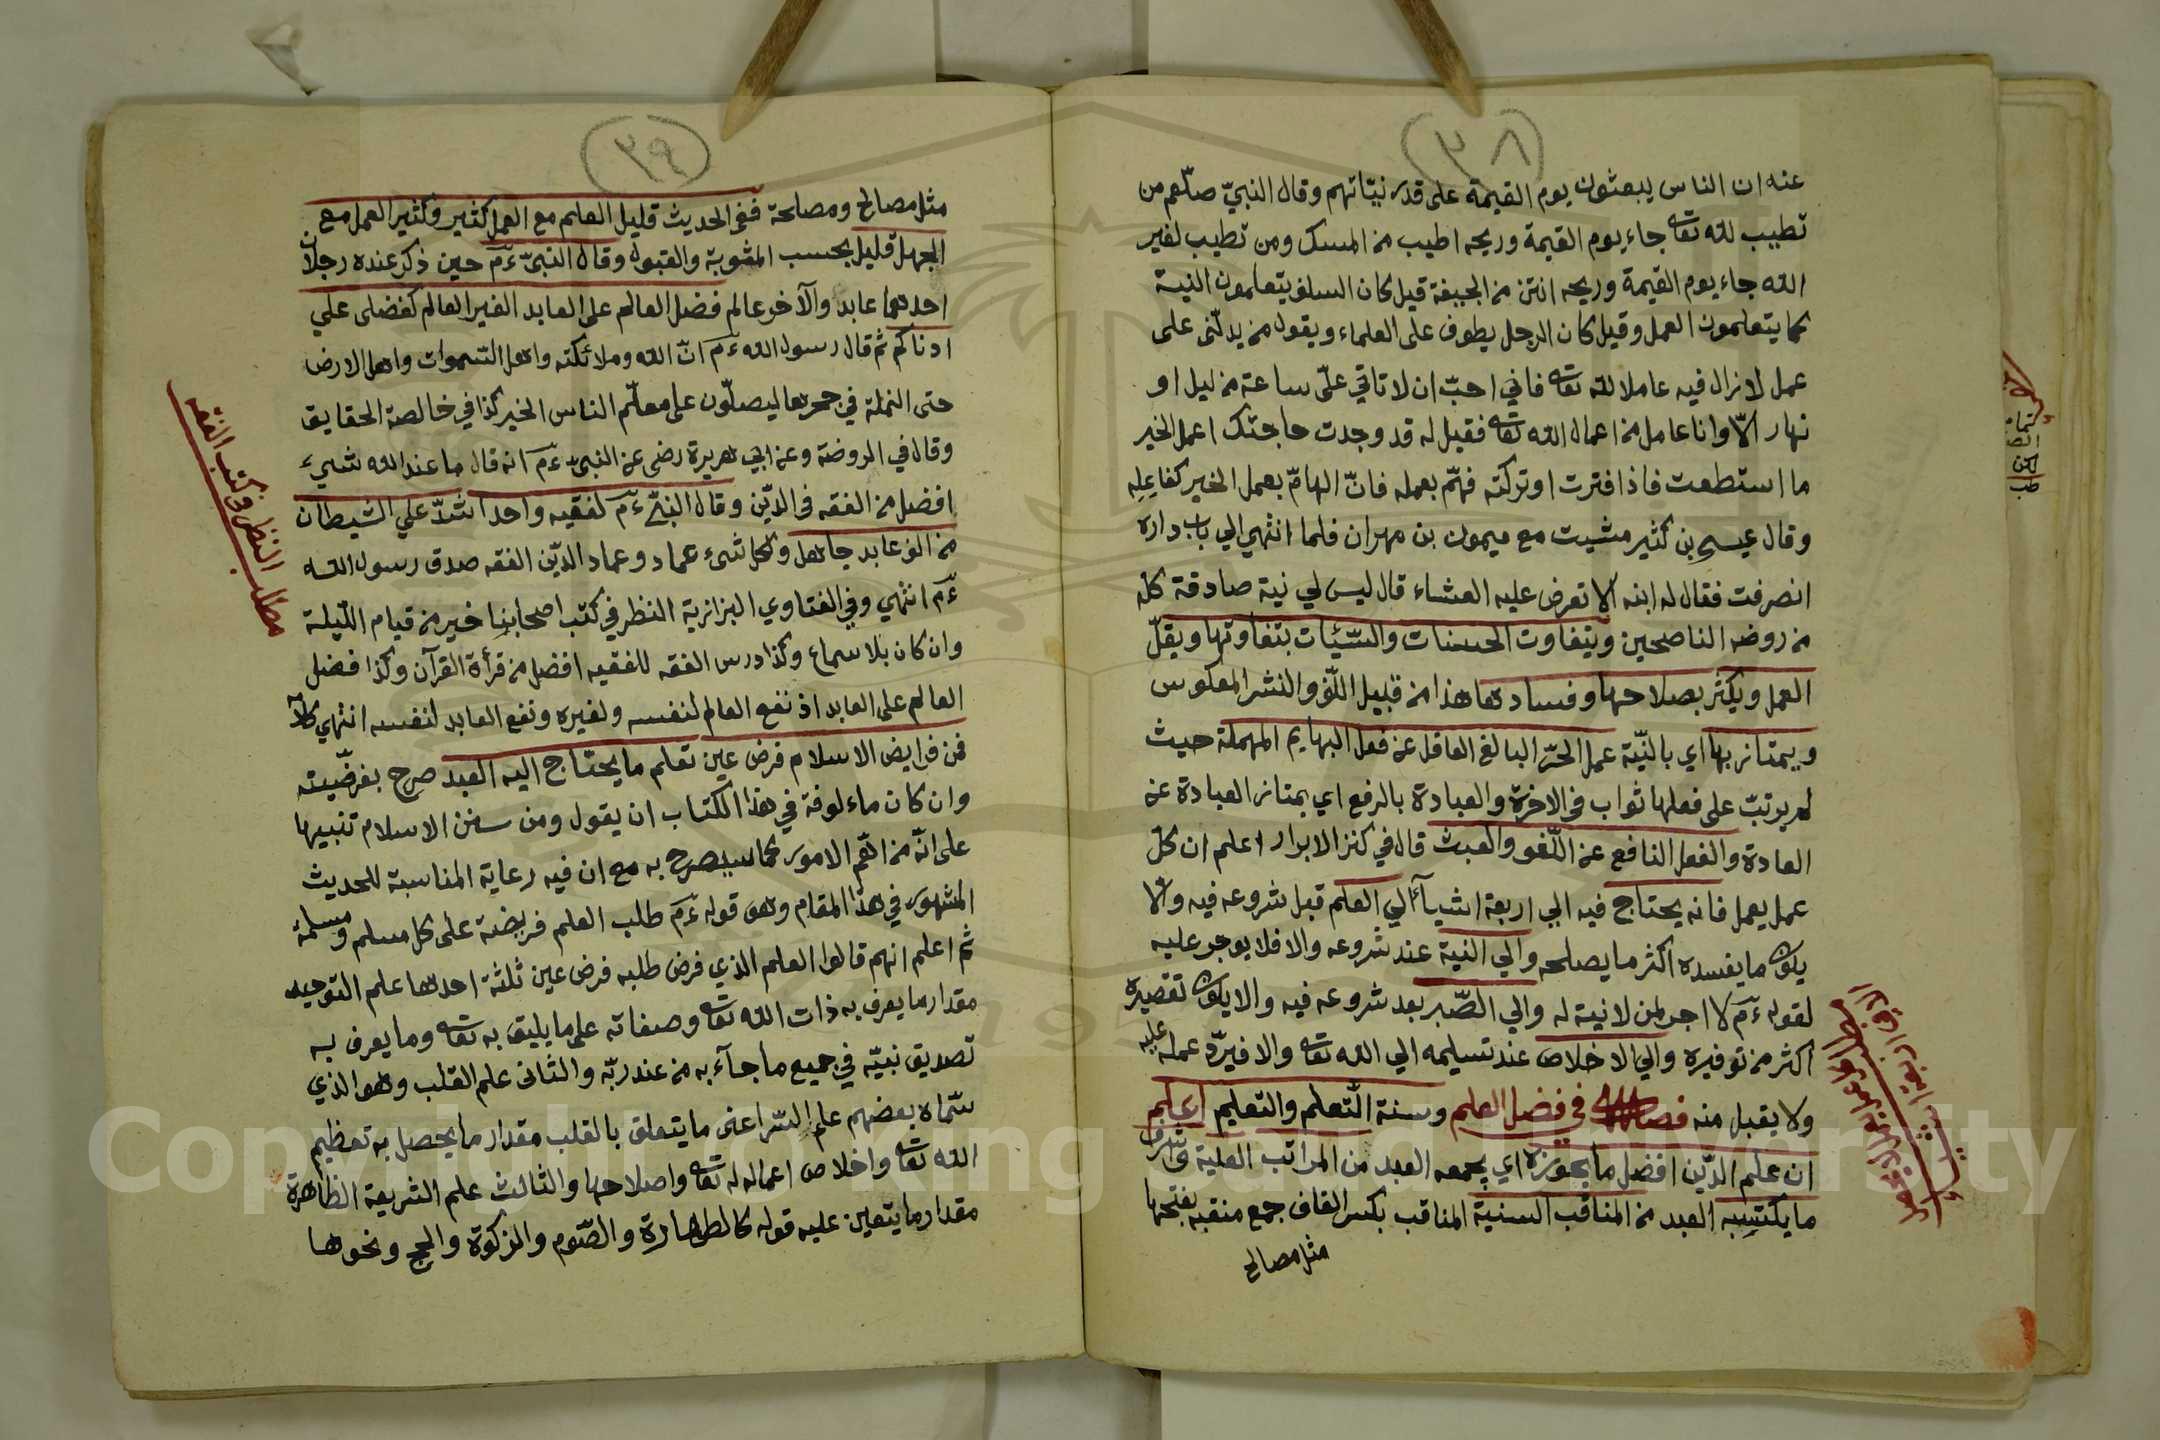 ٣٨
عنه ان الناس يبعثون يوم القيمة على قدر نيّاتهم وقال النبيّ صلّعم من
تطيب للّه تعّه جاء يوم القيمة وريحه اطيب من المسك ومن تطيب لغير
اللّه جاء يوم القيمة وريحه انتن من الجيفة قيل كان السلف يتعلمون النية
كما يتعلمون العمل وقيل كان الرجل يطوف على العلماء ويقول من يدلّنى على
عمل لا نزال فيه عاملا للّه تعّه فاني احبّ ان لا تاتي علّى ساعة من ليل او
نهار الّا وانا عامل من اعمال اللّه تعّه فقيل له قد وجدت حاجتك اعمل الخير
ما استطعت فاذا فترت او تركته فهمّ بعمله فانّ الهامّ بعمل الخير كفاعله
وقال عيسى بن كثير مشيت مع ميمون بن مهران فلما انتهي الي باب داره
انصرفت فقال له ابنه الا تعرض عليه العشاء قال ليس لي نية صادقة كله
من روضه الناصحين ويتفاوت الحسنات والسّيّات بتفاوتها ويقلّ
العمل ويكثر بصلاحها وفسادها هذا من قبيل اللّف والنشر المعكوس
ويمتاز بها اي بالنيّة عمل الحرّ البالغ العاقل عن فعل البهايم المهملة حيث
لم يرتبّ على فعلها ثواب في الاخرة والعبادة بالرفع اي يمتاز العبادة عن
العادة والفعل النافع عن اللّغو والعبث قال في كنز الابرار اعلم ان كلّ
عمل يعمل فانه يحتاج فيه الي اربعة اشيآء الي العلم قبل شروعه فيه والا
يكون ما يفسده اكثر ما يصلحه والي النية عند شروعه والا فلا يوجر عليه
لقوله عمّ لا اجر لمن لا نية له والي الصّبر بعد شروعه فيه والا يكون تقصيره
اكثر من توفيره والي الاخلاص عند تسليمه الي اللّه تعّه والا فيردّ عمله عليه
ولا يقبل منه فصل في فضل العلم وسنة التّعلم والتعليم اعلم
ان علم الدّين افضل ما يحوزه اي يجمعه العبد من المراتب العلية واشرف
ما يكتسبه العبد من المناقب السنية المناقب بكسر القاف جمع منقبه بفتحها
مثل مصالح
٣٩
مثل مصالح ومصلحة ففي الحديث قليل العلم مع العمل كثير وكثير العمل مع
الجهل قليل بحسب المثوبة والقبول وقال النبيّ عمّ حين ذكر عنده رجلان
احدهما عابد والآخر عالم فضل العالم على العابد الغير العالم كفضلى علي
ادناكم ثم قال رسول اللّه عمّ انّ اللّه وملائكته واهل السّموات واهل الارض
حتى النملة في جحرها ليصلّون على معلّم الناس الخير كذا في خالصة الحقايق
وقال في الروضة وعن ابي هريرة رضى عن النبيّ عمّ انه قال ما عند اللّه شيء
افضل من الفقه في الدّين وقال النبيّ عمّ لفقيه واحد اشدّ علي الشيطان
من الف عابد جاهل ولكل شىء عماد وعماد الدّين الفقه صدق رسول اللّه
عمّ انتهي وفي الفتاوي البزازية النظر في كتب اصحابنا خير من قيام اللّيلة
وان كان بلا سماع وكذا درس الفقه للفقيه افضل من قرأة القرآن وكذا فضل
العالم على العابد اذ نفع العالم لنفسه ولغيره ونفع العابد لنفسه انتهي كلامه
فمن فرايض الاسلام فرض عين تعلم ما يحتاج اليه العبد صرح بفرضيّته
وان كان ماءلوفة في هذا الكتاب ان يقول ومن سنن الاسلام تنبيها
على انّه من اهمّ الامور كما سيصرح به مع ان فيه رعاية المناسبة للحديث
المشهور في هذا المقام وهو قوله عمّ طلب العلم فريضة على كل مسلم ومسلمة
ثم اعلم انهم قالوا العلم الذي فرض طلبه فرض عين ثلثة احدها علم التوحيد
مقدار ما يعرف به ذات اللّه تعّه وصفاته على ما يليق به تعّه وما يعرف به
تصديق نبيّه في جميع ما جآء به من عند ربّه والثانى علم القلب وهو الذي
سمّاه بعضهم علم السّر اعنى ما يتعلق بالقلب مقدار ما يحصل به تعظيم
اللّه تعّه واخلاص اعماله له تعّه واصلاحها والثالث علم الشريعة الظّاهرة
مقدار ما يتعين عليه قوله كالطهارة والصّوم والزكوة والحج ونحوها
مطلب النظر في كتب الفقه
Copyright © King Saud University